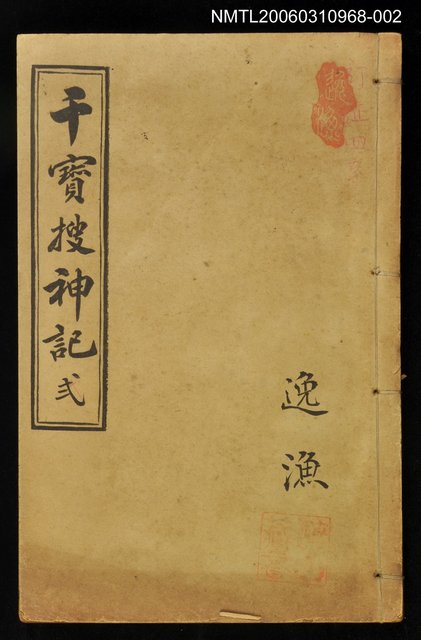 NMTL20060310968-002
干寶搜神記 弍
逸漁